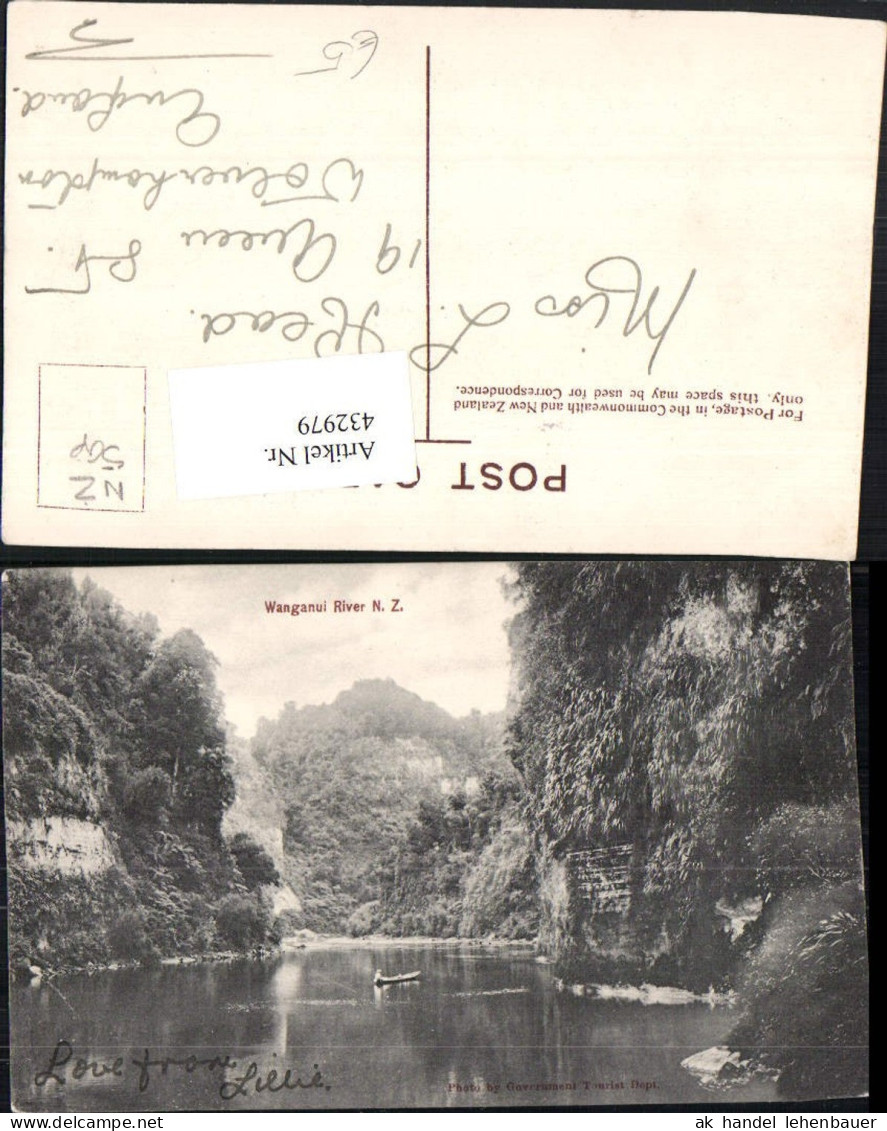 POST
For Postage, in the Commonwealth and New Zealand
only, this space may be used for Correspondence.
Artikel Nr.
432979
NZ
50p
Miss L. Head.
19 Queen St.
Wolverhampton
England.
£5
Wanganui River N. Z.
Love from
Lillie.
Photo by Government Tourist Dept.
ak handel lehenbauer